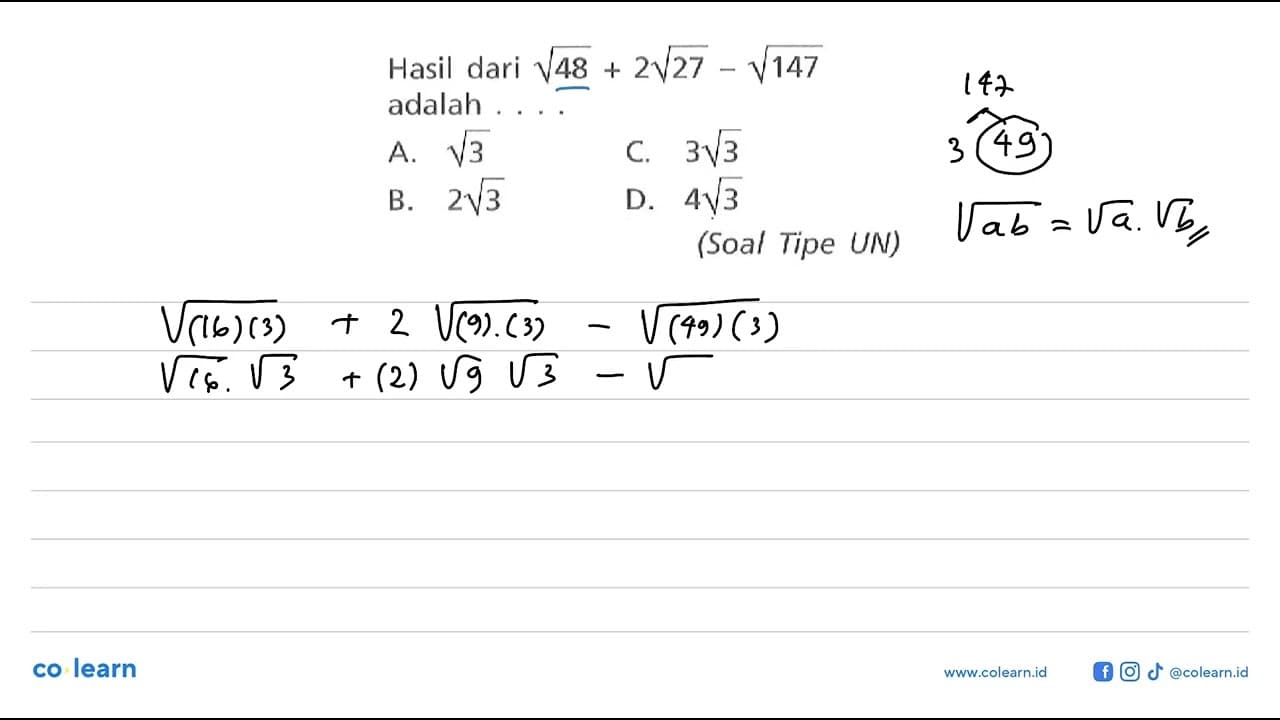 Hasil dari √48 + 2√27 − √147
adalah . . . .
A. √3 C. 3√3
B. 2√3 D. 4√3
(Soal Tipe UN)
147
3 49
√ab = √a. √b
√(16)(3) + 2 √(9).(3) − √(49)(3)
√16. √3 + (2) √9 √3 − √
co learn
www.colearn.id
@colearn.id